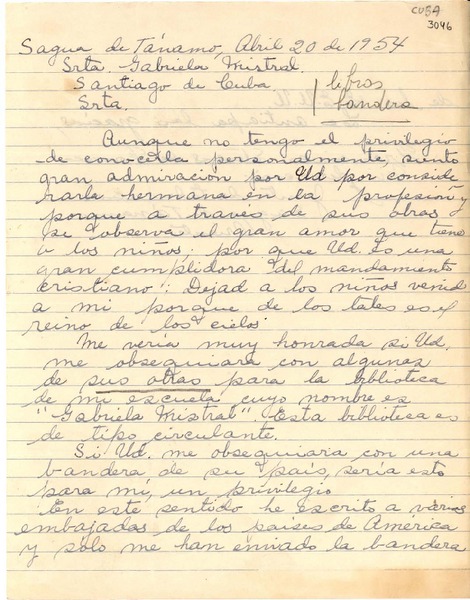 CUBA
3046
Sagua de Tánamo, Abril 20 de 1954
Srta. Gabriela Mistral.
Santiago de Cuba.
Srta.
libros
bandera
Aunque no tengo el privilegio
de conocerla personalmente, siento
gran admiración por Ud por conside
rarla hermana en la profesión y
porque a traves de sus obras
se observa el gran amor que tiene
a los niños, por que Ud. es una
gran cumplidora del mandamiento
cristiano: Dejad a los niños venid
a mi porque de los tales es el
reino de los cielos.
Me vería muy honrada si Ud.
me obsequiara con algunas
de sus obras para la biblioteca
de mi escuela cuyo nombre es
"Gabriela Mistral" Esta biblioteca es
de tipo circulante.
Si Ud. me obsequiara con una
bandera de su país, sería esto
para mí, un privilegio
En este sentido he escrito a varias
embajadas de los paises de América
y sólo me han enviado la bandera